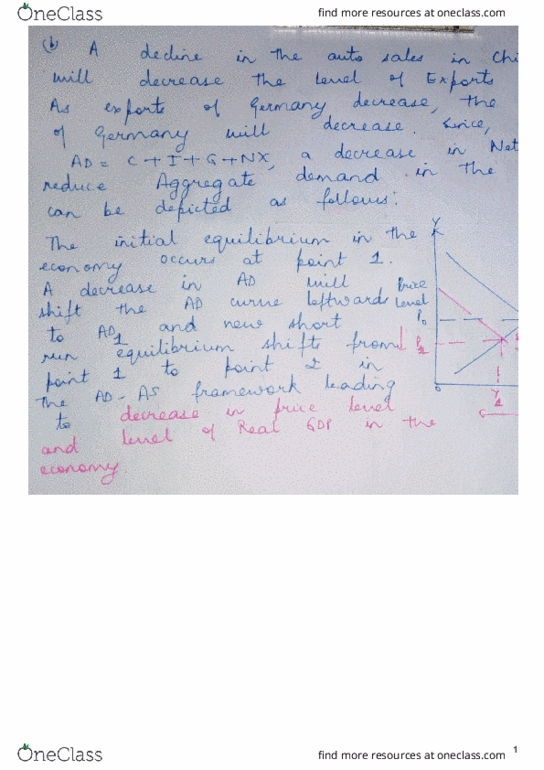 OneClass
find more resources at oneclass.com
(b) A decline in the auto sales in Chi
will decrease the level of Exports
As exports of Germany decrease, the
of Germany will decrease. Since,
AD = C+I+G+NX, a decrease in Net
reduce Aggregate demand in the
can be depicted as follows:
The initial equilibrium in the
economy occurs at point 1.
A decrease in AD will
shift the AD curve leftwards
to AD1 and new short
run equilibrium shifts from
point 1 to point 2 in
the AD-AS framework leading
to decrease in price level
and level of Real GDP in the
economy.
Y
Price
level
P0
0
OneClass
find more resources at oneclass.com
1